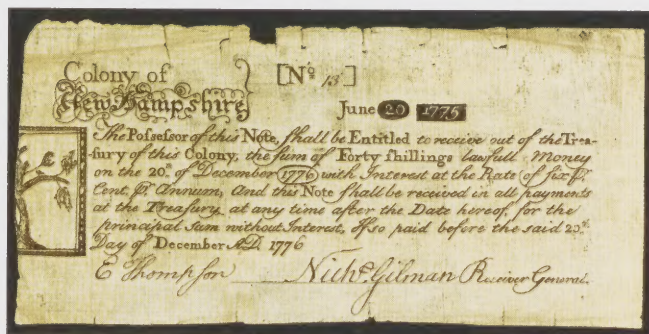 Colony of
New Hampshire
[No 13]
June 20 1775
The Possessor of this Note, shall be Entitled to receive out of the Trea-
sury of this Colony, the sum of Forty shillings lawfull Money
on the 20th of December 1776 with Interest at the Rate of six pr.
Cent. pr. Annum, And this Note shall be received in all payments
at the Treasury at any time after the Date hereof, for the
principal Sum without Interest, If so paid before the said 20th
Day of December A.D. 1776
E Thompson Nichs Gilman Receiver General.